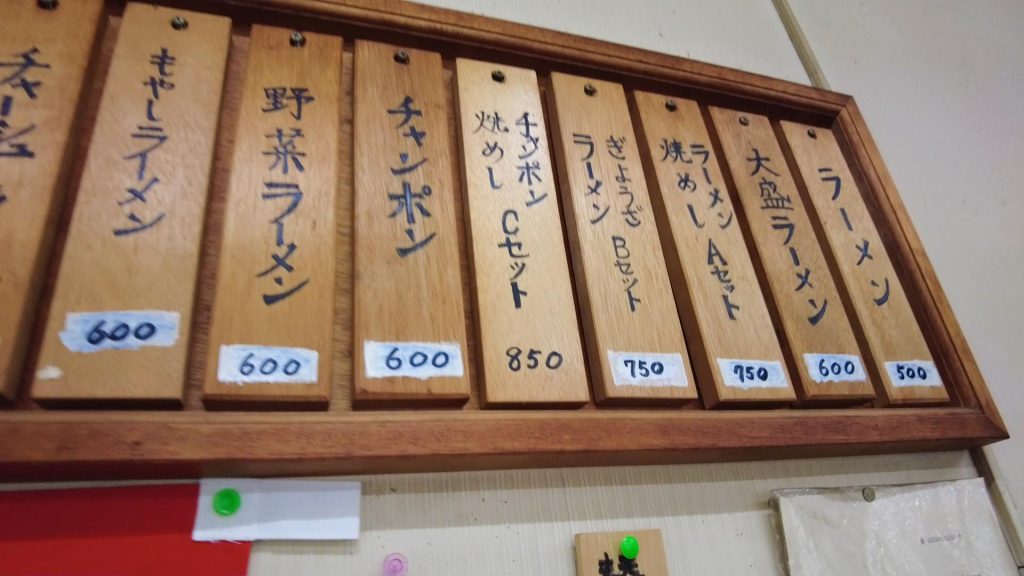 ラーメン
500
大盛ラーメン
600
ラーメン
焼めし Aセット
750
ぎょうざ Bセット
ラーメン
750
チャンポン
焼めし Cセット
850
チャンポン
600
野菜ラーメン
600
もやしラーメン
600
チャーシュ